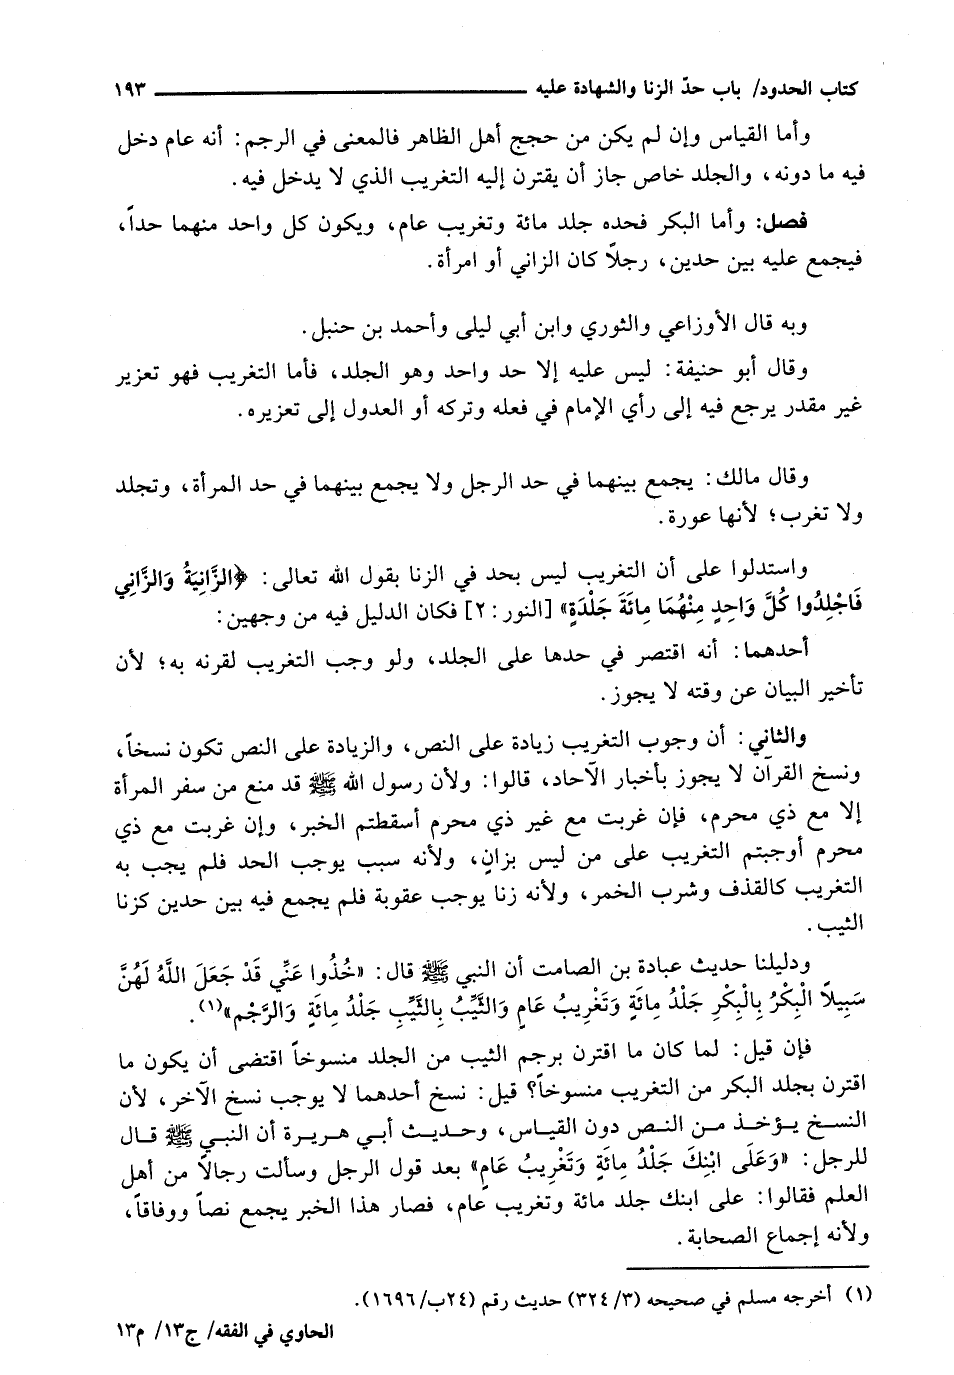 كتاب الحدود/ باب حدّ الزنا والشهادة عليه ــــــــــــ ١٩٣
وأما القياس وإن لم يكن من حجج أهل الظاهر فالمعنى في الرجم: أنه عام دخل
فيه ما دونه، والجلد خاص جاز أن يقترن إليه التغريب الذي لا يدخل فيه.
فصل: وأما البكر فحده جلد مائة وتغريب عام، ويكون كل واحد منهما حداً،
فيجمع عليه بين حدين، رجلاً كان الزاني أو امرأة.
وبه قال الأوزاعي والثوري وابن أبي ليلى وأحمد بن حنبل.
وقال أبو حنيفة: ليس عليه إلا حد واحد وهو الجلد، فأما التغريب فهو تعزير
غير مقدر يرجع فيه إلى رأي الإمام في فعله وتركه أو العدول إلى تعزيره.
وقال مالك: يجمع بينهما في حد الرجل ولا يجمع بينهما في حد المرأة، وتجلد
ولا تغرب؛ لأنها عورة.
واستدلوا على أن التغريب ليس بحد في الزنا بقول الله تعالى: ﴿الزَّانِيَةُ وَالزَّانِي
فَاجْلِدُوا كُلَّ وَاحِدٍ مِنْهُمَا مِائَةَ جَلْدَةٍ﴾ [النور: ٢] فكان الدليل فيه من وجهين:
أحدهما: أنه اقتصر في حدها على الجلد، ولو وجب التغريب لقرنه به؛ لأن
تأخير البيان عن وقته لا يجوز.
والثاني: أن وجوب التغريب زيادة على النص، والزيادة على النص تكون نسخاً،
ونسخ القرآن لا يجوز بأخبار الآحاد، قالوا: ولأن رسول الله ﷺ قد منع من سفر المرأة
إلا مع ذي محرم، فإن غربت مع غير ذي محرم أسقطتم الخبر، وإن غربت مع ذي
محرم أوجبتم التغريب على من ليس بزانٍ، ولأنه سبب يوجب الحد فلم يجب به
التغريب كالقذف وشرب الخمر، ولأنه زنا يوجب عقوبة فلم يجمع فيه بين حدين كزنا
الثيب.
ودليلنا حديث عبادة بن الصامت أن النبي ﷺ قال: «خُذُوا عَنِّي قَدْ جَعَلَ اللَّهُ لَهُنَّ
سَبِيلاً الْبِكْرُ بِالْبِكْرِ جَلْدُ مِائَةٍ وَتَغْرِيبُ عَامٍ وَالثَّيِّبُ بِالثَّيِّبِ جَلْدُ مِائَةٍ وَالرَّجْمِ»(١).
فإن قيل: لما كان ما اقترن برجم الثيب من الجلد منسوخاً اقتضى أن يكون ما
اقترن بجلد البكر من التغريب منسوخاً؟ قيل: نسخ أحدهما لا يوجب نسخ الآخر، لأن
النسخ يؤخذ من النص دون القياس، وحديث أبي هريرة أن النبي ﷺ قال
للرجل: «وَعَلَى ابْنِكَ جَلْدُ مِائَةٍ وَتَغْرِيبُ عَامٍ» بعد قول الرجل وسألت رجالاً من أهل
العلم فقالوا: على ابنك جلد مائة وتغريب عام، فصار هذا الخبر يجمع نصاً ووفاقاً،
ولأنه إجماع الصحابة.
(١) أخرجه مسلم في صحيحه (٣/ ٣٢٤) حديث رقم (٢٤ب/١٦٩٦).
الحاوي في الفقه/ ج١٣/ م١٣